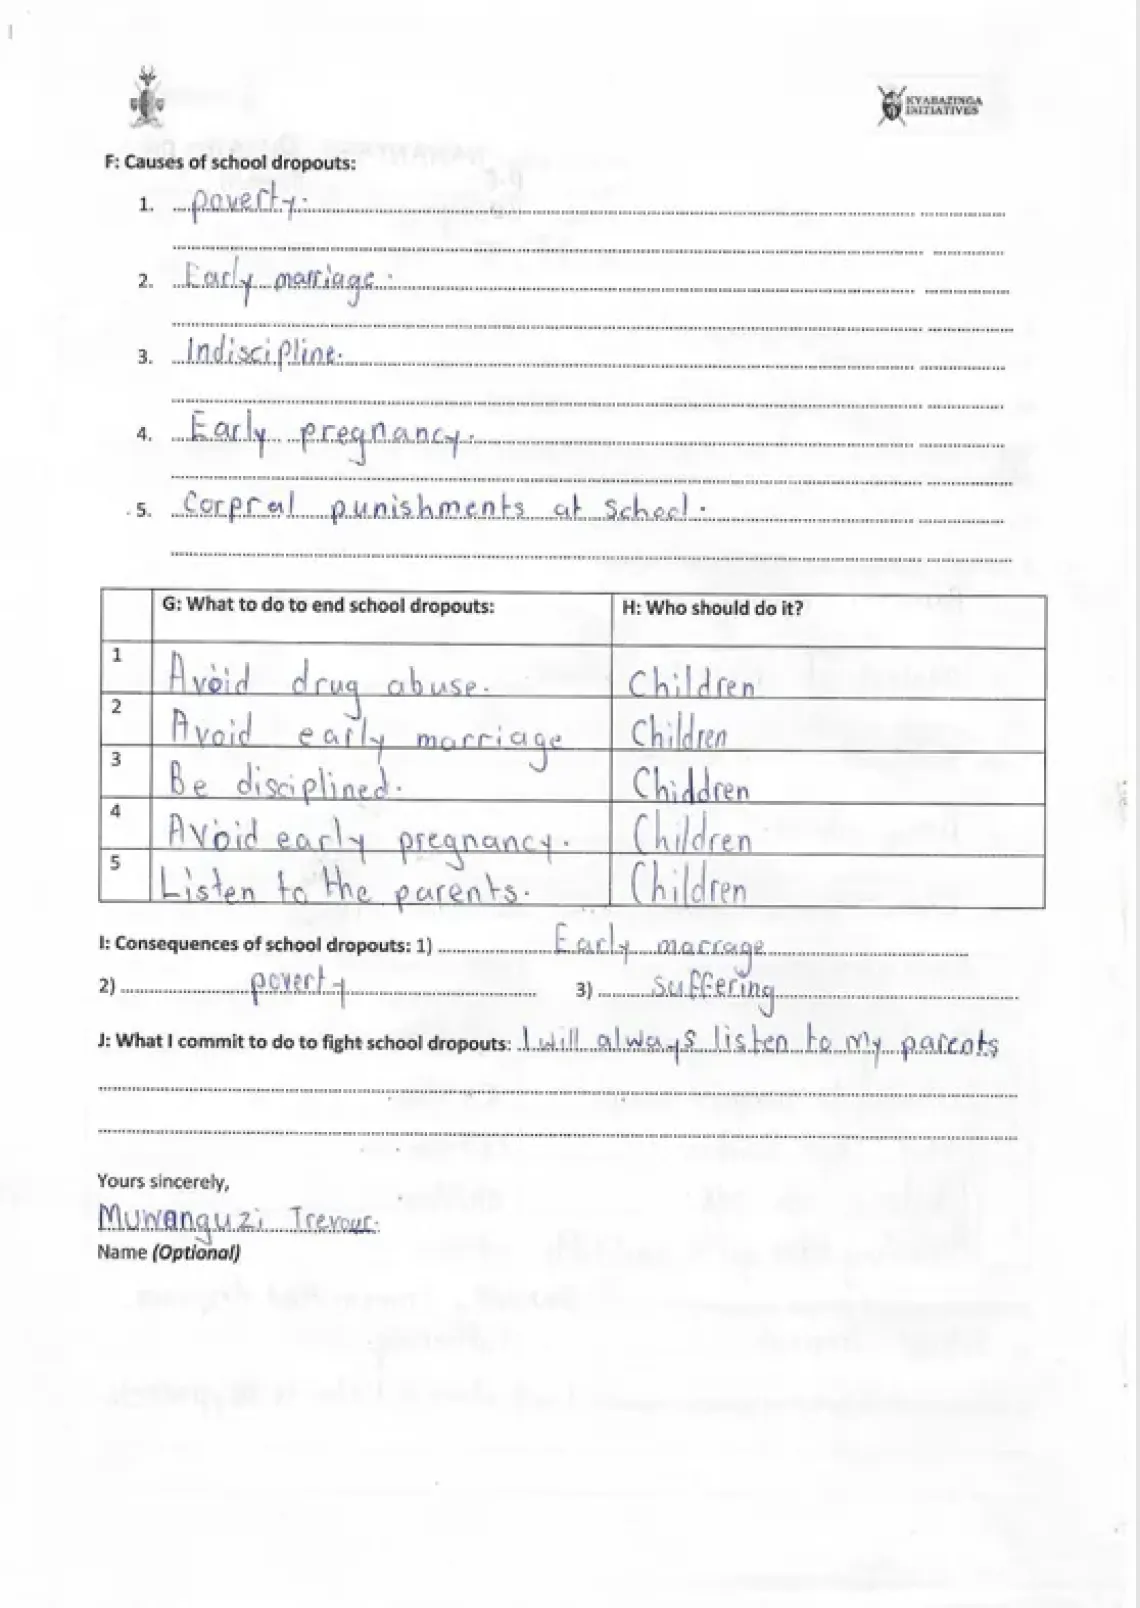 KYABAZINGA
INITIATIVES
F: Causes of school dropouts:
1. poverty.
2. Early marriage.
3. Indiscipline.
4. Early pregnancy.
5. Corpral punishments at School.
G: What to do to end school dropouts: H: Who should do it?
1 Avoid drug abuse. Children
2 Avoid early marriage Children
3 Be disciplined. Chiddren
4 Avoid early pregnancy. Children
5 Listen to the parents. Children
I: Consequences of school dropouts: 1) Early marrage
2) poverty 3) Suffering
J: What I commit to do to fight school dropouts: I will always listen to my parents
Yours sincerely,
Muwanguzi Trevour.
Name (Optional)